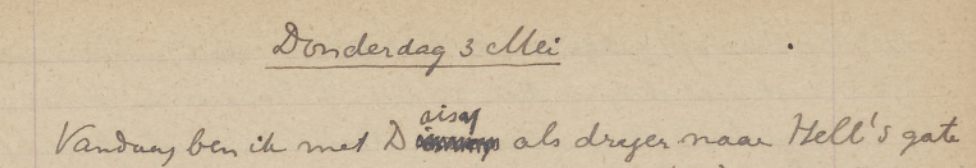 Donderdag 3 Mei
Vandaag ben ik met Djisaf als drager naar Hell's gate